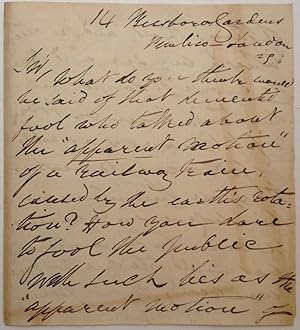 14 Bessboro Gardens
Pimlico - London
Sir, What do you think would
be said of that demented
fool who talked about
the "apparent motion"
of a Railway train,
caused by the earth's rota-
tion? How you dare
to fool the public
with such lies as the
"apparent motion" of